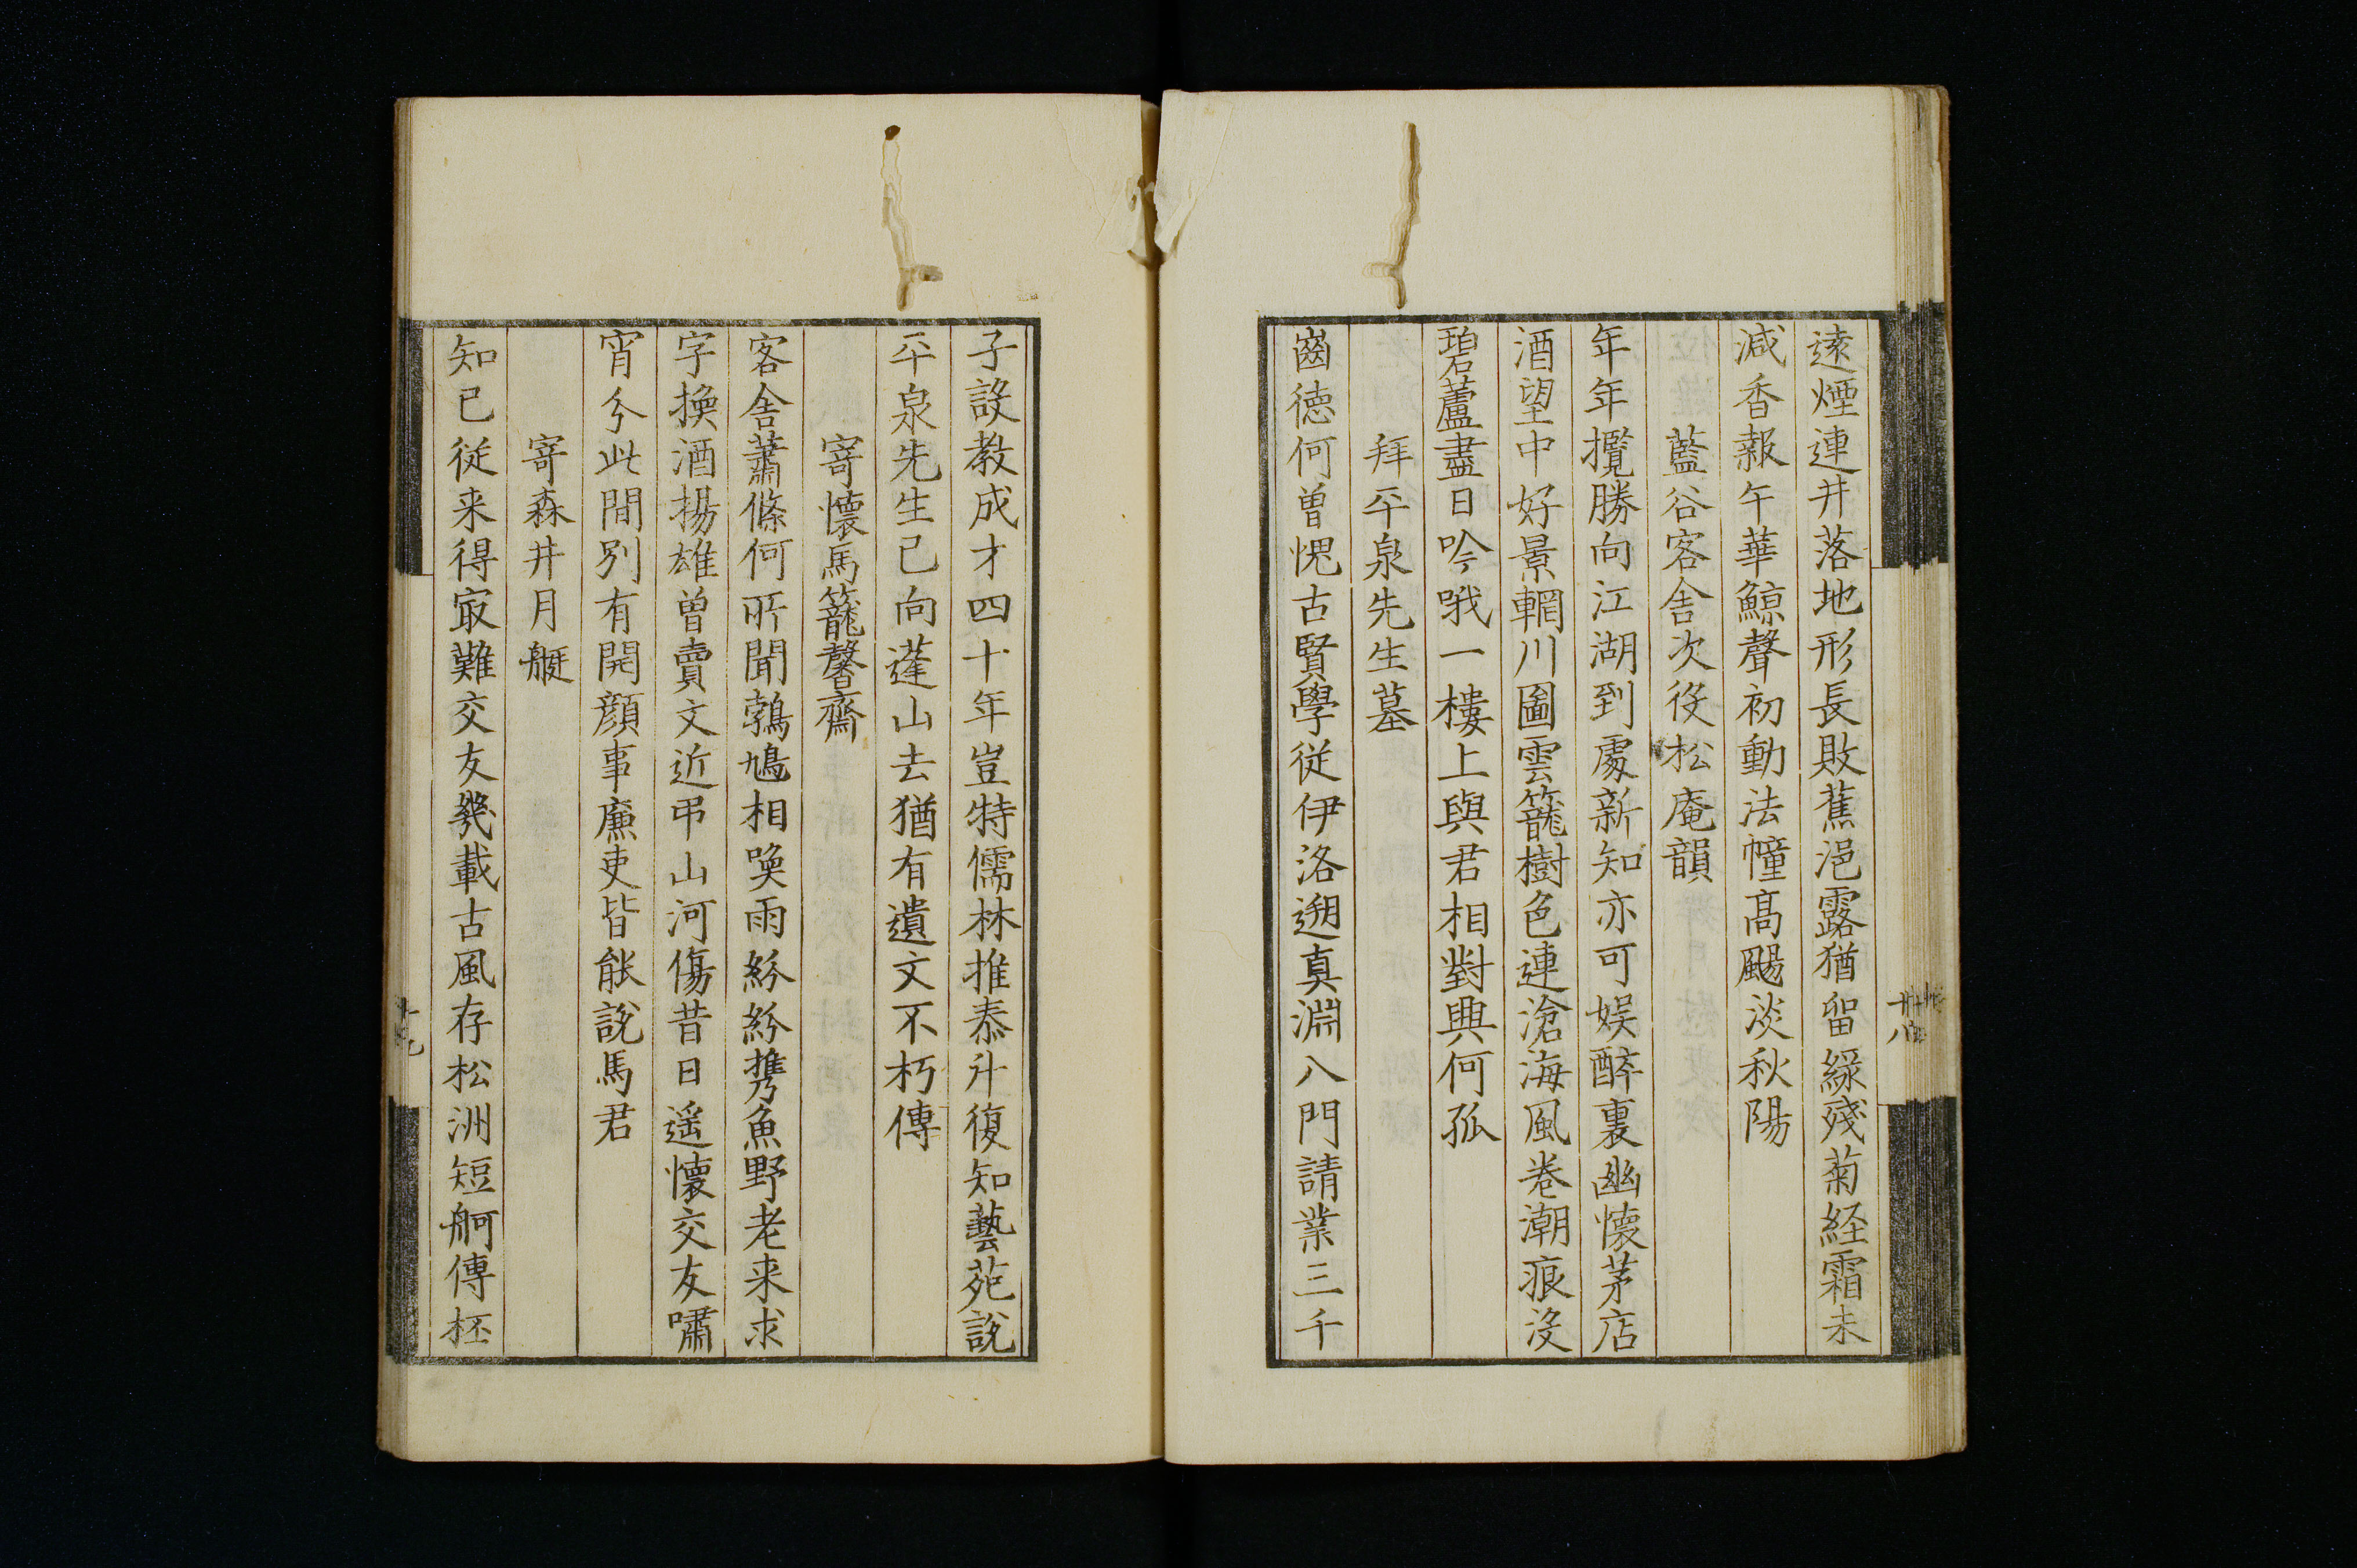 遠煙連井落地形長敗蕉浥露猶留緑殘菊経霜未
減香報午華鯨聲初動法幢髙颺淡秋陽
藍谷客舎次役松庵韻
年年攬勝向江湖到處新知亦可娯醉裏幽懐茅店
酒望中好景輞川圖雲籠樹色連滄海風巻潮痕没
碧蘆盡日吟哦一樓上與君相對興何孤
拜平泉先生墓
齒徳何曽愧古賢學従伊洛遡真淵入門請業三千
子設教成才四十年豈特儒林推泰斗復知藝苑説
平泉先生已向蓬山去猶有遺文不朽傳
寄懐馬籠馨齋
客舎蕭條何所聞鵓鳩相喚雨紛紛携魚野老来求
字換酒揚雄曽賣文近弔山河傷昔日遥懐交友嘯
宵分此間別有開顔事廉吏皆能説馬君
寄森井月艇
知已従来得寂難交友幾載古風存松洲短舸傳杯
十八
十九